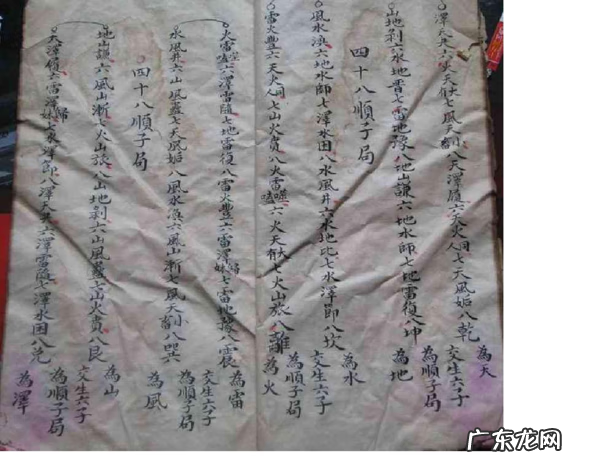 澤天夬六雷天大壯七風天小畜八天澤履六天火同人七天風姤八乾為天
交生六子
為順子局
山地剝六水地晋七雷地豫八地山謙六地水師七地雷復八坤為地
四十八順子局
風水渙六地水師七澤水困八水風井六水地比七水澤節八坎為水
交生六子
為順子局
雷火豐六天火同人七山火賁八火雷噬嗑六火天大有七火山旅八離為火
火雷噬嗑六澤雷隨七地雷復八雷火豐六雷澤歸妹七雷地豫八震為雷
交生六子
為順子局
水風井六山風蠱七天風姤八風水渙六風山漸七風天小畜八巽為風
四十八順子局
地山謙六風山漸七火山旅八山地剝六山風蠱七山火賁八艮為山
交生六子
為順子局
天澤履六雷澤歸妹七水澤節八澤天夬六澤雷隨七澤水困八兌為澤
广东龙网